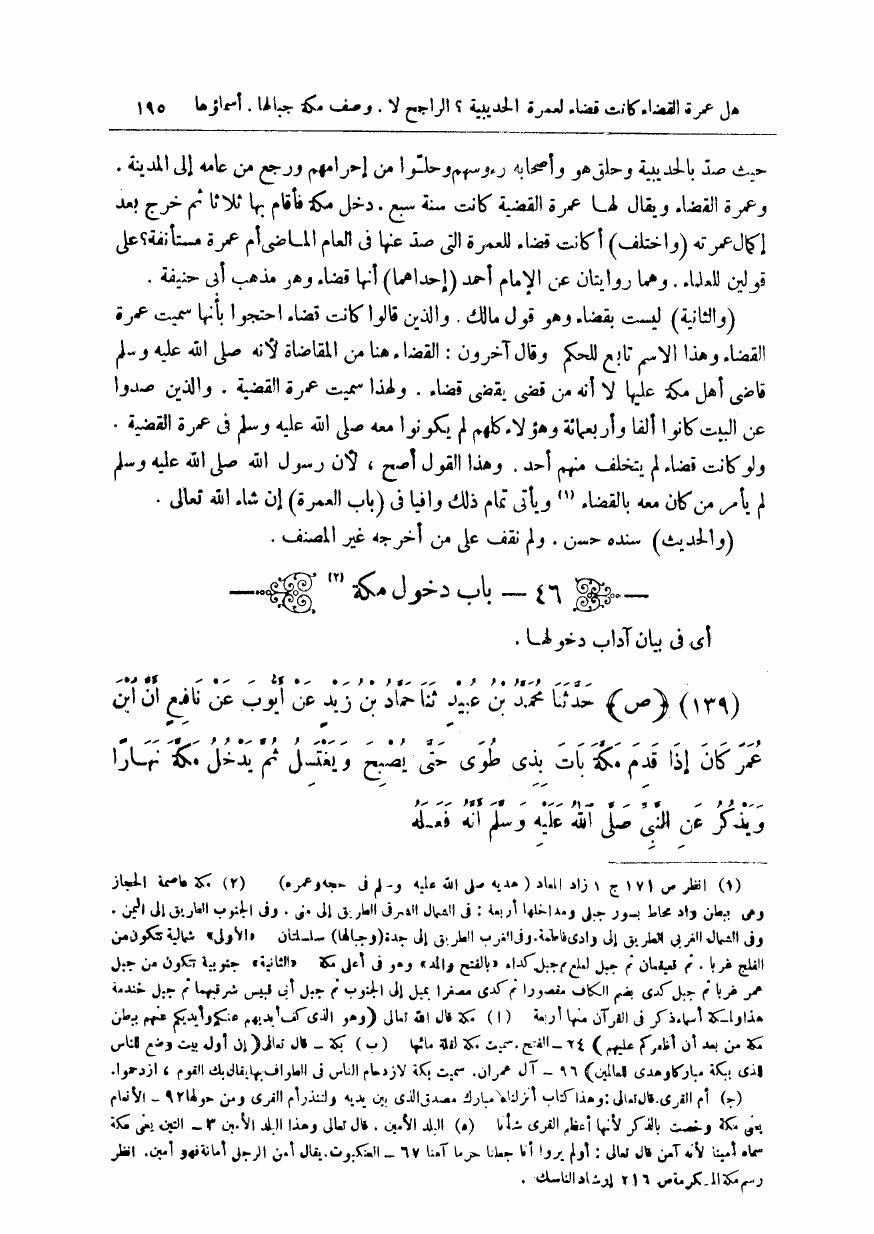 هل عمرة القضاء كانت قضاء لعمرة الحديبية ؟ الراجح لا . وصف مكة جبالها . أسماؤها ١٩٥
حيث صدّ بالحديبية وحلق هو وأصحابه رءوسهم وحلّوا من إحرامهم ورجع من عامه إلى المدينة .
وعمرة القضاء ويقال لها عمرة القضية كانت سنة سبع . دخل مكة فأقام بها ثلاثا ثم خرج بعد
إكمال عمرته (واختلف) أكانت قضاء للعمرة التى صدّ عنها فى العام الماضى أم عمرة مستأنفة؟ على
قولين للعلماء . وهما روايتان عن الإمام أحمد (إحداهما) أنها قضاء وهو مذهب أبى حنيفة .
(والثانية) ليست بقضاء وهو قول مالك . والذين قالوا كانت قضاء احتجوا بأنها سميت عمرة
القضاء وهذا الاسم تابع للحكم وقال آخرون : القضاء هنا من المقاضاة لأنه صلى الله عليه وسلم
قاضى أهل مكة عليها لا أنه من قضى يقضى قضاء . ولهذا سميت عمرة القضية . والذين صدوا
عن البيت كانوا ألفا وأربعمائة وهؤلاء كلهم لم يكونوا معه صلى الله عليه وسلم فى عمرة القضية .
ولو كانت قضاء لم يتخلف منهم أحد . وهذا القول أصح ، لأن رسول الله صلى الله عليه وسلم
لم يأمر من كان معه بالقضاء (١) ويأتى تمام ذلك وافيا فى (باب العمرة) إن شاء الله تعالى .
(والحديث) سنده حسن . ولم نقف على من أخرجه غير المصنف .
— ٤٦ — باب دخول مكة (٢) —
أى فى بيان آداب دخولها .
(١٣٩) (ص) حَدَّثَنَا مُحَمَّدُ بْنُ عُبَيْدٍ ثَنَا حَمَّادُ بْنُ زَيْدٍ عَنْ أَيُّوبَ عَنْ نَافِعٍ أَنَّ ابْنَ
عُمَرَ كَانَ إِذَا قَدِمَ مَكَّةَ بَاتَ بِذِى طُوًى حَتَّى يُصْبِحَ وَيَغْتَسِلُ ثُمَّ يَدْخُلُ مَكَّةَ نَهَارًا
وَيَذْكُرُ عَنِ النَّبِىِّ صَلَّى اللهُ عَلَيْهِ وَسَلَّمَ أَنَّهُ فَعَلَهُ
(١) انظر ص ١٧١ ج ١ زاد المعاد (هديه صلى الله عليه وسلم فى حجه وعمره) (٢) مكة عاصمة الحجاز
وهى ببطن واد محاط بسور جبلى ومداخلها أربعة : فى الشمال الشرقى الطريق إلى منى . وفى الجنوب الطريق إلى اليمن .
وفى الشمال الغربى الطريق إلى وادى فاطمة. وفى الغرب الطريق إلى جدة (وجبالها) سلسلتان «الأولى» شمالية تتكون من
الفلج غربا . ثم قعيقعان ثم جبل لعلع ثم جبل كداء «بالفتح والمد» وهو فى أعلى مكة «الثانية» جنوبية تتكون من جبل
عمر غربا ثم جبل كدى بضم الكاف مقصورا ثم كدى مصغرا يميل إلى الجنوب ثم جبل أبى قبيس شرقيهما ثم جبل خندمة
هذا ولمكة أسماء ذكر فى القرآن منها أربعة (ا) مكة قال الله تعالى (وهو الذى كف أيديهم عنكم وأيديكم عنهم ببطن
مكة من بعد أن أظفركم عليهم) ٢٤ – الفتح. سميت مكة لقلة مائها (ب) بكة – قال تعالى (إن أول بيت وضع للناس
للذى ببكة مباركا وهدى للعالمين) ٩٦ – آل عمران. سميت بكة لازدحام الناس فى الطواف بها يقال بك القوم ، ازدحموا.
(ج) أم القرى. قال تعالى : وهذا كتاب أنزلناه مبارك مصدق الذى بين يديه ولتنذر أم القرى ومن حولها ٩٢ – الأنعام
يعنى مكة وخصت بالذكر لأنها أعظم القرى شأنا (ه) البلد الأمين . قال تعالى وهذا البلد الأمين ٣ – التين يعنى مكة
سماه أمينا لأنه آمن قال تعالى : أولم يروا أنا جعلنا حرما آمنا ٦٧ – العنكبوت. يقال أمن الرجل أمانة فهو أمين. انظر
رسم مكة المكرمة ص ٢١٦ إرشاد الناسك .